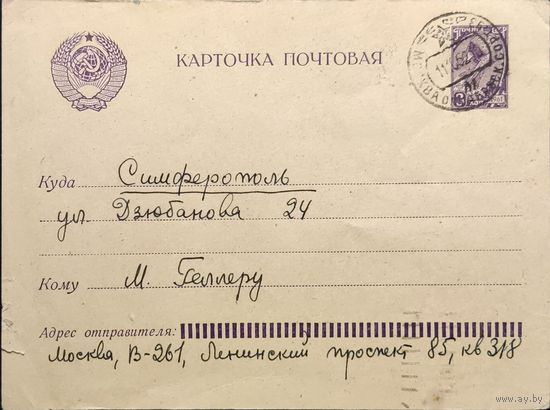 КАРТОЧКА ПОЧТОВАЯ
ПОЧТА
Куда Симферополь
ул. Дзюбанова 24
Кому М. Геллеру
Адрес отправителя:
Москва, В-261, Ленинский проспект 85, кв 318
www.ay.by